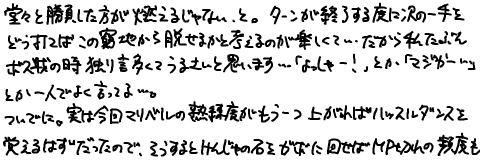 堂々と勝負した方が燃えるじゃない、と。ターンが終了する度に次の一手を
どう打てばこの窮地から脱せるかと考えるのが楽しくて…だから私たぶん
ボス戦の時独り言多くてうるさいと思います…「よっしゃー！」とか「マジかー…」
とか一人でよく言ってる…。
ついでに。実は今回マリベルの熟練度がもう一つ上がればハッスルダンスを
覚えるはずだったので、そうするとけんじゃの石をがなに回せばMPきれの頻度も